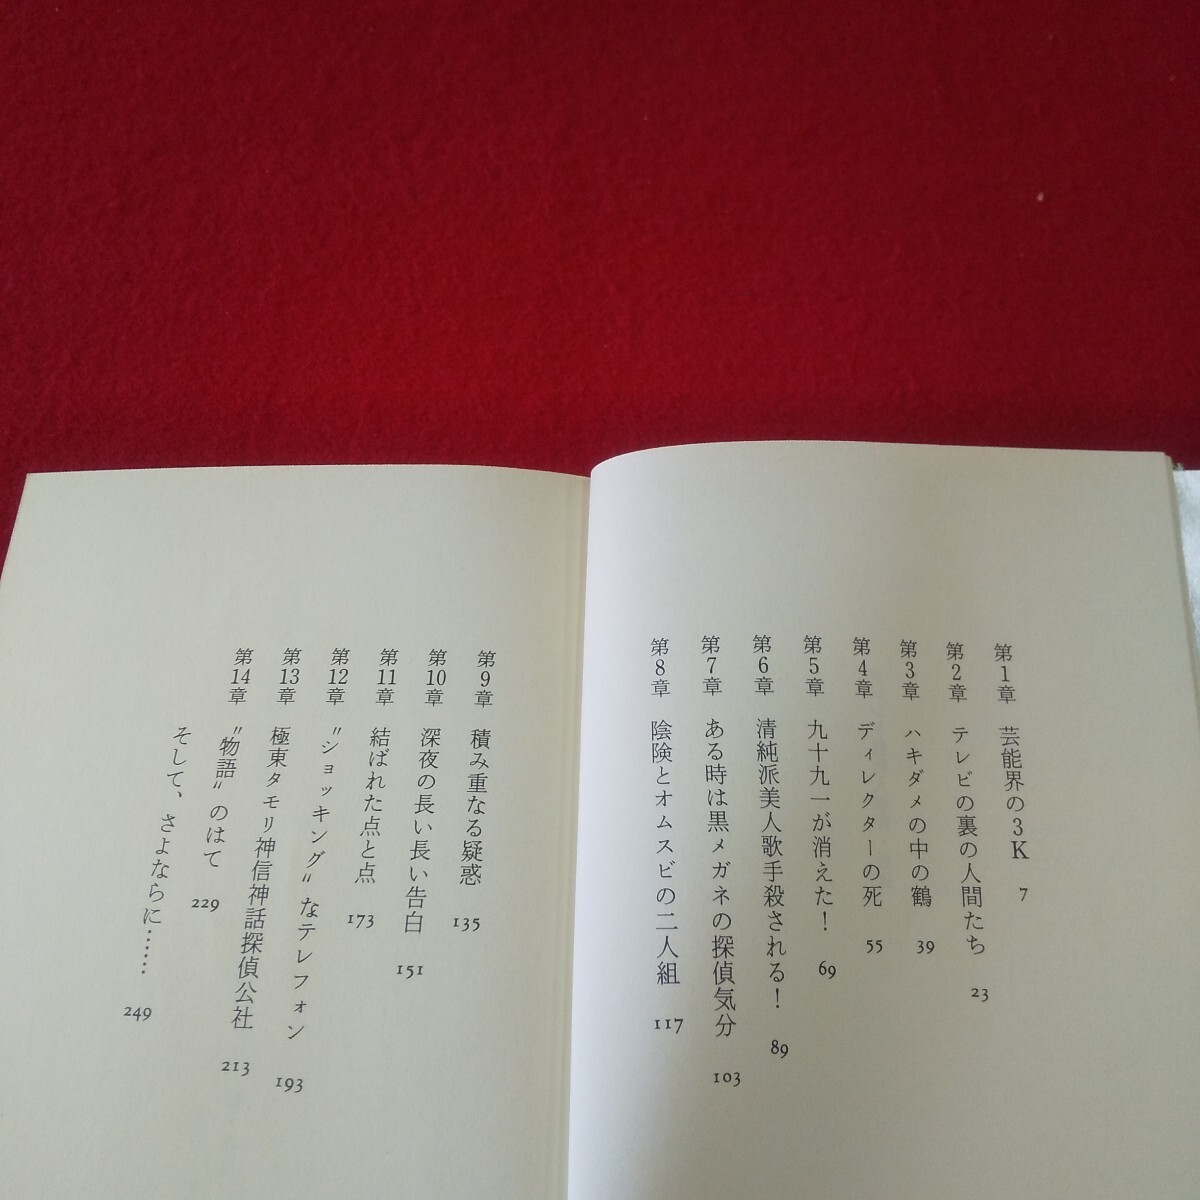 第1章 芸能界の3K 7
第2章 テレビの裏の人間たち 23
第3章 ハキダメの中の鶴 39
第4章 ディレクターの死 55
第5章 九十九一が消えた! 69
第6章 清純派美人歌手殺される! 89
第7章 ある時は黒メガネの探偵気分 103
第8章 陰険とオムスビの二人組 117
第9章 積み重なる疑惑 135
第10章 深夜の長い長い告白 151
第11章 結ばれた点と点 173
第12章 〝ショッキング〟なテレフォン 193
第13章 極東タモリ神信神話探偵公社 213
第14章 〝物語〟のはて 229
そして、さよならに…… 249